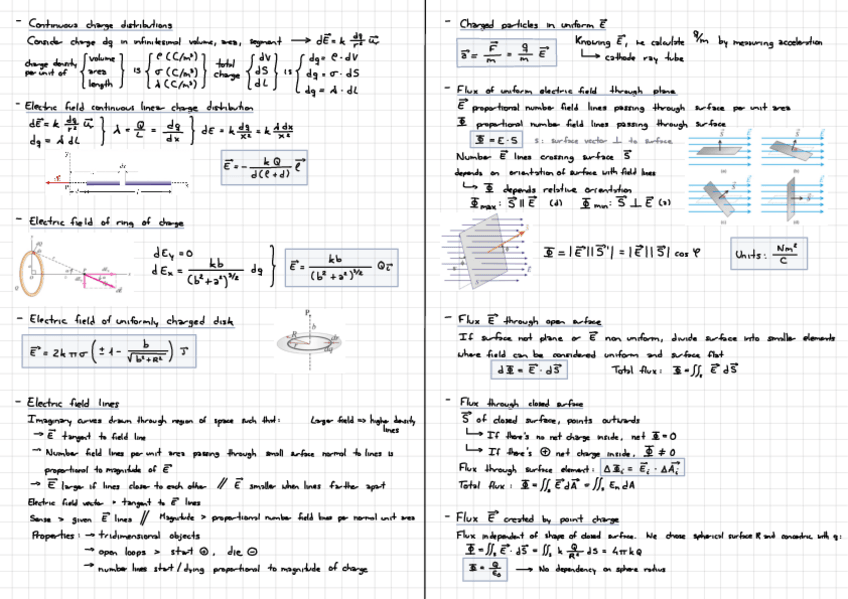 - Continuous charge distributions
Consider charge dq in infinitesimal volume, area, segment → dE⃗ = k dq/r² u⃗
charge density per unit of { volume area length } is { ρ (C/m³) σ (C/m²) λ (C/m) } total charge { dV dS dL } is { dq = ρ · dV dq = σ · dS dq = λ · dL
- Electric field continuous linear charge distribution
dE⃗ = k dq/r² u⃗
dq = λ dL } λ = Q/L = dq/dx } dE = k dq/x² = k λdx/x²
E⃗ = - kQ/d(ℓ+d) i⃗
- Electric field of ring of charge
dEy = 0
dEx = kb/(b²+a²)^3/2 dq } E⃗ = kb/(b²+a²)^3/2 Q i⃗
- Electric field of uniformly charged disk
E⃗ = 2kπσ (±1 - b/√(b²+R²)) j⃗
- Electric field lines
Imaginary curves drawn through region of space such that: Larger field ⇒ higher density lines
→ E⃗ tangent to field line
→ Number field lines per unit area passing through small surface normal to lines is
proportional to magnitude of E⃗
→ E⃗ large if lines close to each other // E⃗ smaller when lines farther apart
Electric field vector > tangent to E⃗ lines
Sense > given E⃗ lines // Magnitude > proportional number field lines per normal unit area
Properties: → tridimensional objects
→ open loops > start ⊕, die ⊖
→ number lines start/dying proportional to magnitude of charge
- Charged particles in uniform E⃗
a⃗ = F⃗/m = q/m E⃗
Knowing E⃗, we calculate q/m by measuring acceleration
↳ cathode ray tube
- Flux of uniform electric field through plane
E⃗ proportional number field lines passing through surface per unit area
Φ proportional number field lines passing through surface
Φ = E · S s: surface vector ⊥ to surface
Number E⃗ lines crossing surface S⃗
depends on orientation of surface with field lines
↳ Φ depends relative orientation
Φmax: S⃗ ∥ E⃗ (d) Φmin: S⃗ ⊥ E⃗ (a)
Φ = |E⃗||S⃗| = |E⃗||S⃗| cos φ
Units: Nm²/C
- Flux E⃗ through open surface
If surface not plane or E⃗ non uniform, divide surface into smaller elements
where field can be considered uniform and surface flat
dΦ = E⃗ · dS⃗ Total flux: Φ = ∬ₛ E⃗ dS⃗
- Flux through closed surface
S⃗ of closed surface, points outwards
↳ If there's no net charge inside, net Φ = 0
↳ If there's ⊕ net charge inside, Φ ≠ 0
Flux through surface element: ΔΦi = E⃗i · ΔA⃗i
Total flux: Φ = ∬ₛ E⃗ dA⃗ = ∬ₛ En dA
- Flux E⃗ created by point charge
Flux independent of shape of closed surface. We chose spherical surface R and concentric with q:
Φ = ∬ₛ E⃗ · dS⃗ = ∬ₛ k Q/R² dS = 4πkQ
Φ = Q/ε₀ → No dependency on sphere radius